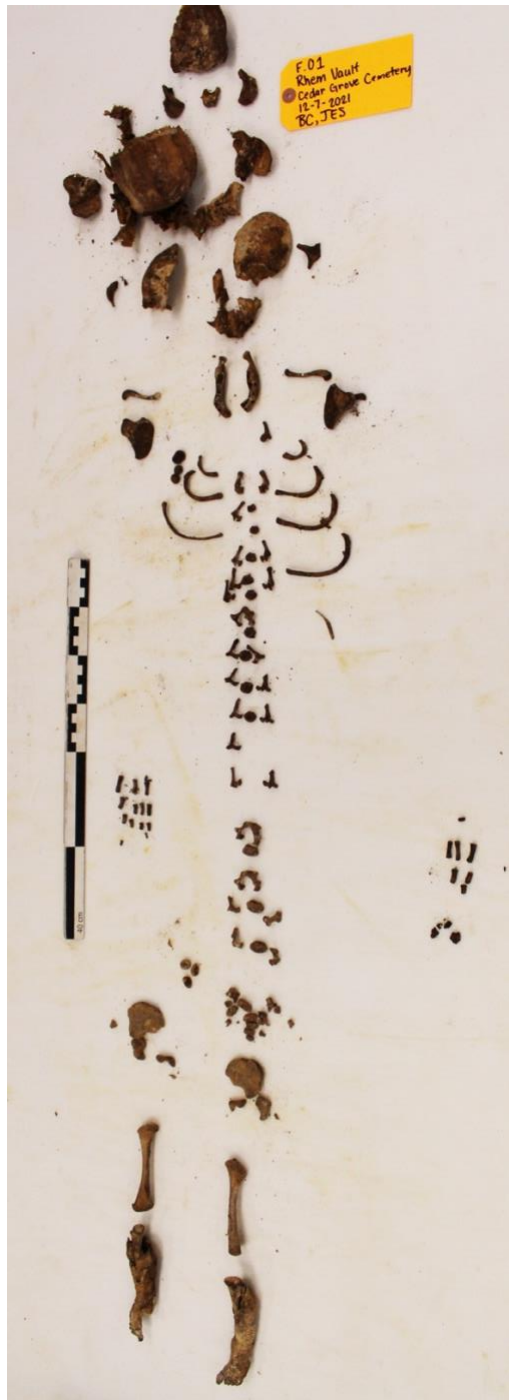 F.01
Rhem Vault
Cedar Grove Cemetery
12-7-2021
BC, JES
40 cm